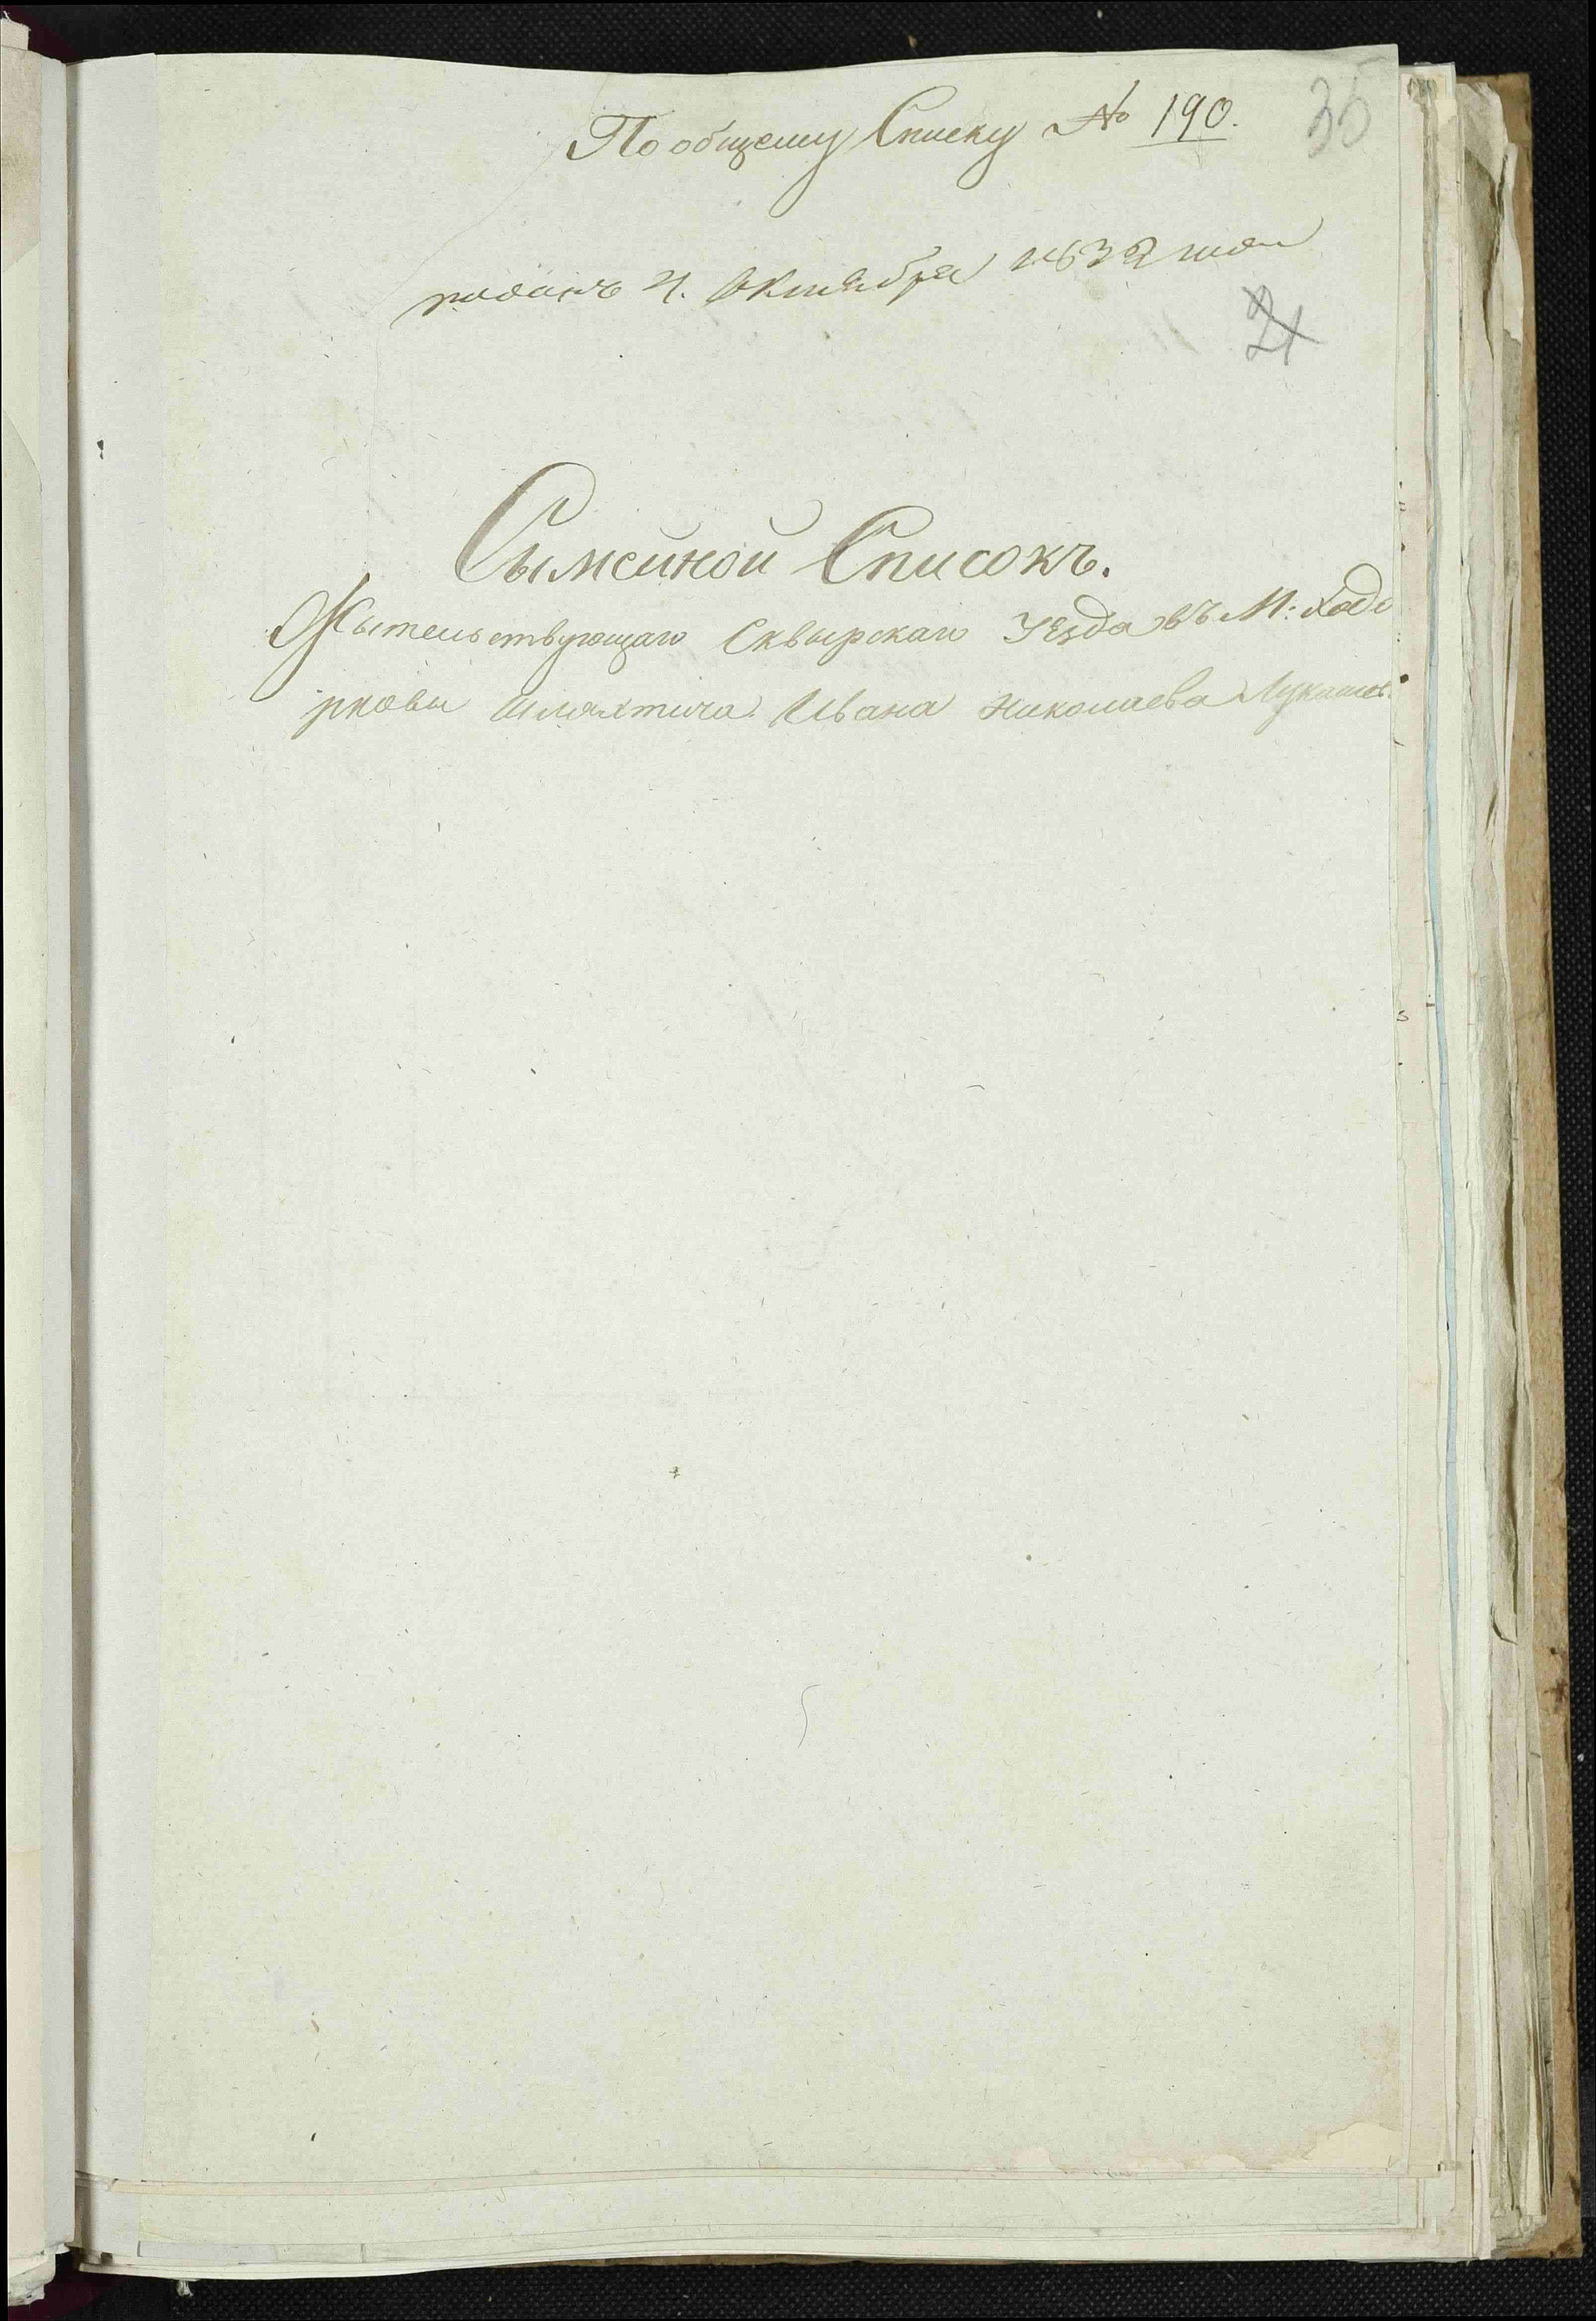 По общему Списку № 190.
35
поданъ 4. Октября 1832 года
21
Сымейной Списокъ.
Жытельствующаго Сквырскаго Уезда въ М: Ходо
ркови шляхтича Ивана Николаева Лукашев: